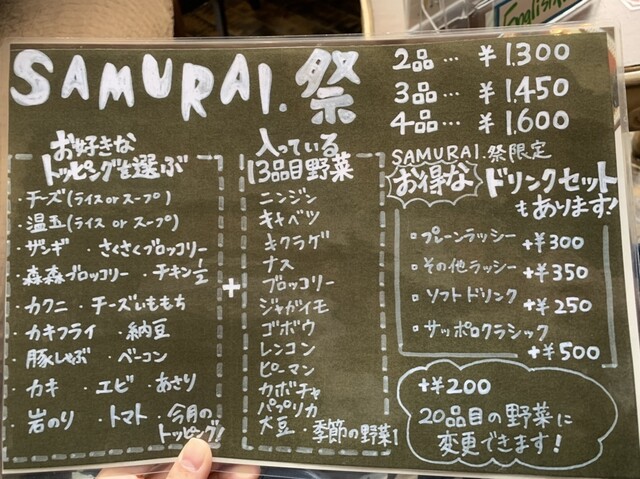 English
SAMURAI.祭
2品… ¥1,300
3品… ¥1,450
4品… ¥1,600
お好きな
トッピングを選ぶ
・チーズ(ライス or スープ)
・温玉(ライス or スープ)
・ザンギ ・さくさくブロッコリー
・森森ブロッコリー ・チキン1/2
・カクニ ・チーズいももち
・カキフライ ・納豆
・豚しゃぶ ・ベーコン
・カキ ・エビ ・あさり
・岩のり ・トマト ・今月の
トッピング!
+
入っている
13品目野菜
ニンジン
キャベツ
キクラゲ
ナス
ブロッコリー
ジャガイモ
ゴボウ
レンコン
ピーマン
カボチャ
パプリカ
大豆 ・季節の野菜1
SAMURAI.祭限定
お得な ドリンクセット
もあります!
・プレーンラッシー +¥300
・その他ラッシー +¥350
・ソフトドリンク +¥250
・サッポロクラシック
+¥500
+¥200
20品目の野菜に
変更できます!